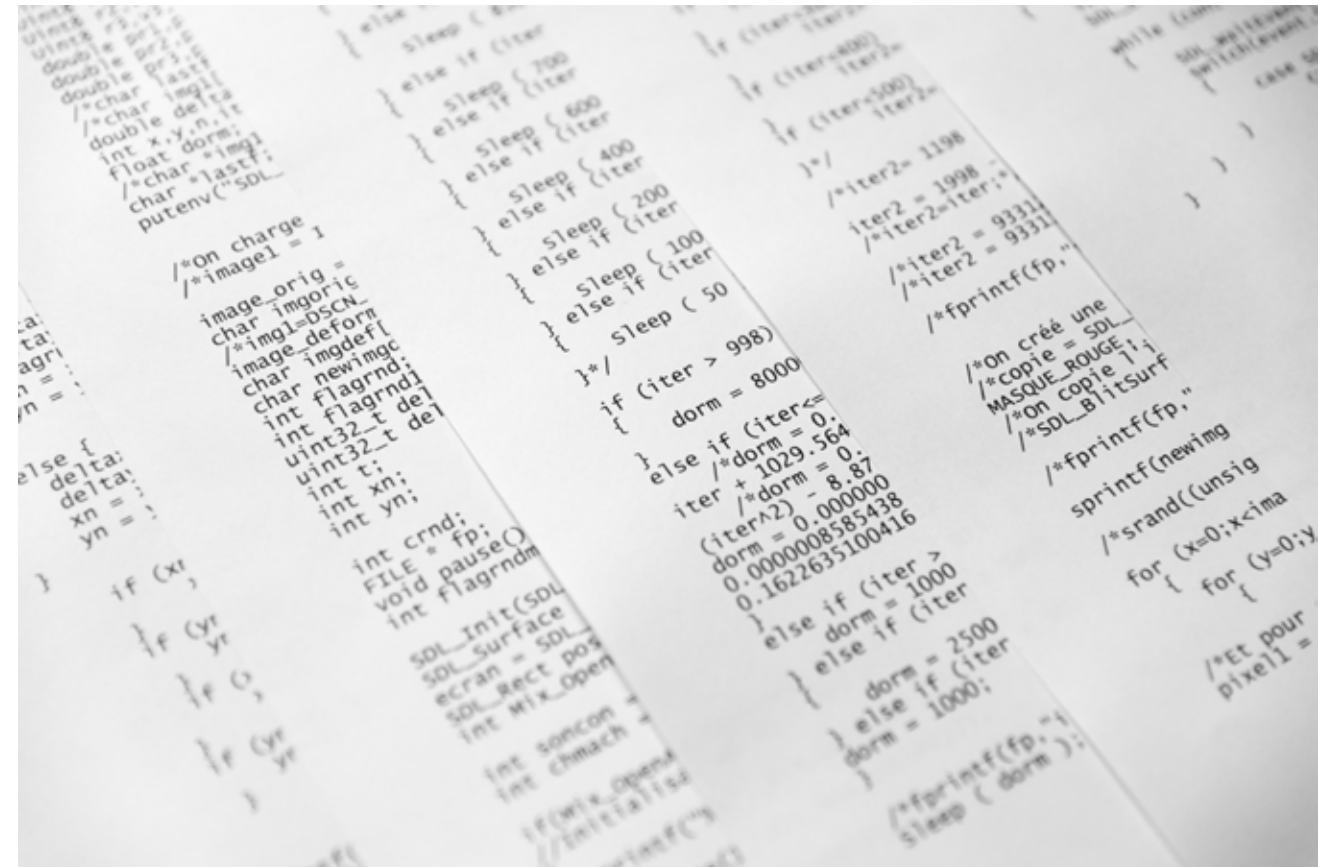 double delta
int x,y,n,it
float dorm;
/*char *img1
char *lastf;
putenv("SDL_
/*On charge
/*image1 = I
image_orig =
char imgorig
/*img1=DSCN_
image_deform
char imgdef[
char newimgc
int flagrnd;
int flagrnd1
uint32_t del
uint32_t del
int t;
int xn;
int yn;
int crnd;
FILE * fp;
void pause()
int flagrndm
SDL_Init(SDL
SDL_Surface
ecran = SDL_
SDL_Rect pos
int Mix_Open
int soncon =
int chmach =
else {
delta:
delta:
xn =
yn =
}
if (xr
}
if (yr
yr
}
if (
}
if (yr
yr
}
} else if (iter
{
sleep ( 700
} else if (iter
{
sleep ( 600
} else if (iter
{
sleep ( 400
} else if (iter
{
sleep ( 200
} else if (iter
{
sleep ( 100
} else if (iter
{
sleep ( 50
}*/
if (iter > 998)
{
dorm = 8000
}
else if (iter<=
/*dorm = 0.
iter + 1029.564
/*dorm = 0.
(iter^2) - 8.87
dorm = 0.000000
0.0000008585438
0.1622635100416
}
else if (iter >
dorm = 1000
} else if (iter
{
dorm = 2500
} else if (iter
dorm = 1000;
}
/*fprintf(fp,"i
sleep ( dorm );
if (iter<400)
iter2=
}
if (iter<500)
iter2=
}*/
/*iter2= 1198
iter2 = 1998 -
/*iter2=iter;*
/*iter2 = 9331
/*iter2 = 9331
/*fprintf(fp,"
/*on créé une
/*copie = SDL_
MASQUE_ROUGE,
/*On copie l'i
/*SDL_BlitSurf
/*fprintf(fp,"
sprintf(newimg
/*srand((unsig
for (x=0;x<ima
{
for (y=0;y
{
/*Et pour
pixel1 =
while (con
{
switch(event.
{
}
}
}